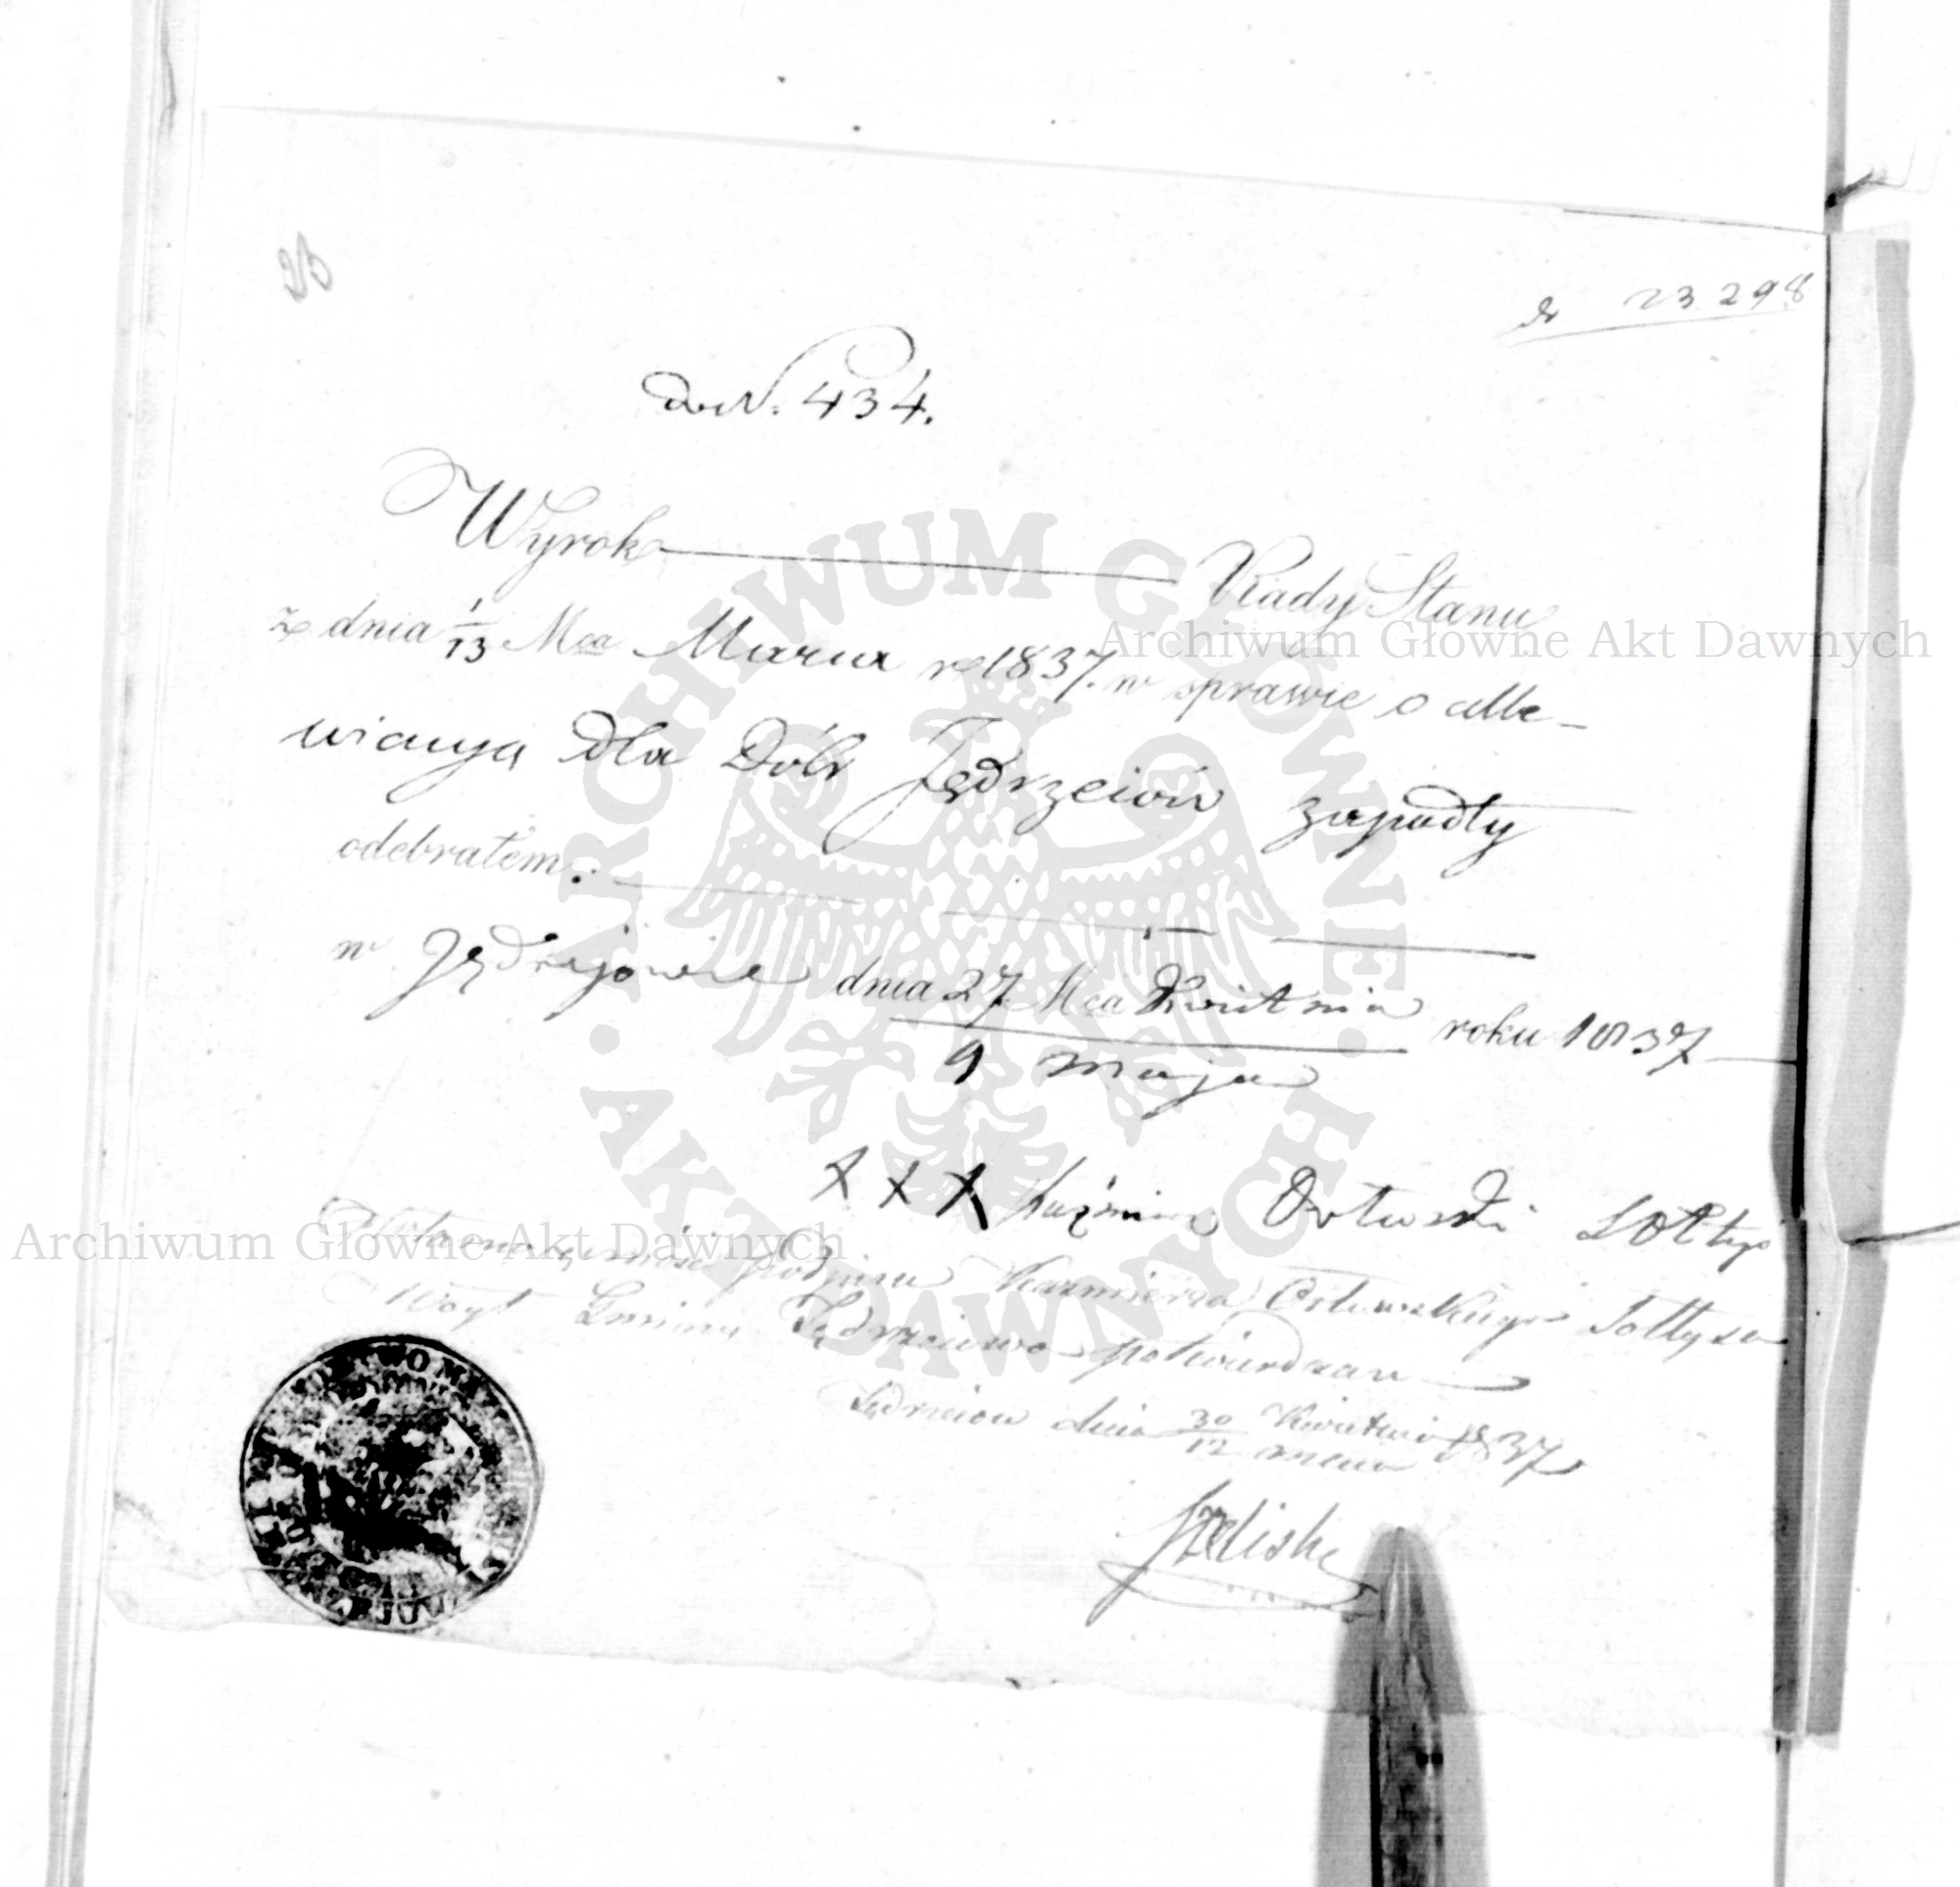 23298
do N. 434.
Wyrok Rady Stanu
z dnia 1/13 Mca Marca r 1837. w sprawie o alle-
wiacyą dla Dóbr Jędrzeiów zapadły
odebrałem.
w Jędrzejowie dnia 27 Mca Kwietnia roku 1837
9 maja
X X X Kaźmirz Ostuski Sołtys
podpisu Kazmierza Ostuskiego Sołtysa
Woyt Gminy Jędrzeiowa potwierdzam
Jędrzeiow dnia 30/12 Kwietnia/maia 1837
ARCHIWUM GŁÓWNE AKT DAWNYCH
Archiwum Główne Akt Dawnych
Archiwum Główne Akt Dawnych